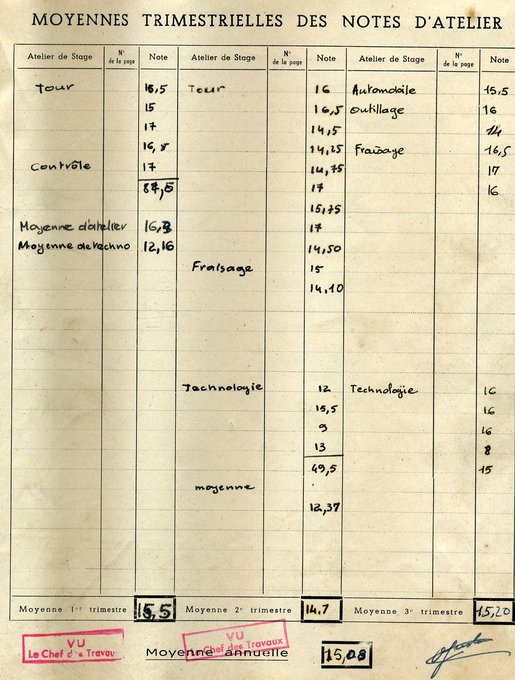 MOYENNES TRIMESTRIELLES DES NOTES D'ATELIER
Atelier de Stage N° de la page Note
Tour
15
17
Contrôle 17
Moyenne d'atelier 16,3
Moyenne de techno 12,16
Moyenne 1er trimestre 15,5
Atelier de Stage N° de la page Note
Tour 16
16,5
14,5
14,25
14,75
17
15,75
17
14,50
Fraisage 15
14,10
Technologie 12
15,5
9
13
49,5
moyenne
12,37
Moyenne 2e trimestre 14.7
Atelier de Stage N° de la page Note
Automobile 15,5
outillage 16
14
Fraisage 16,5
17
16
Technologie 16
16
16
8
15
Moyenne 3e trimestre 15,20
VU
Le Chef des Travaux
VU
Chef des Travaux
Moyenne annuelle 15,08